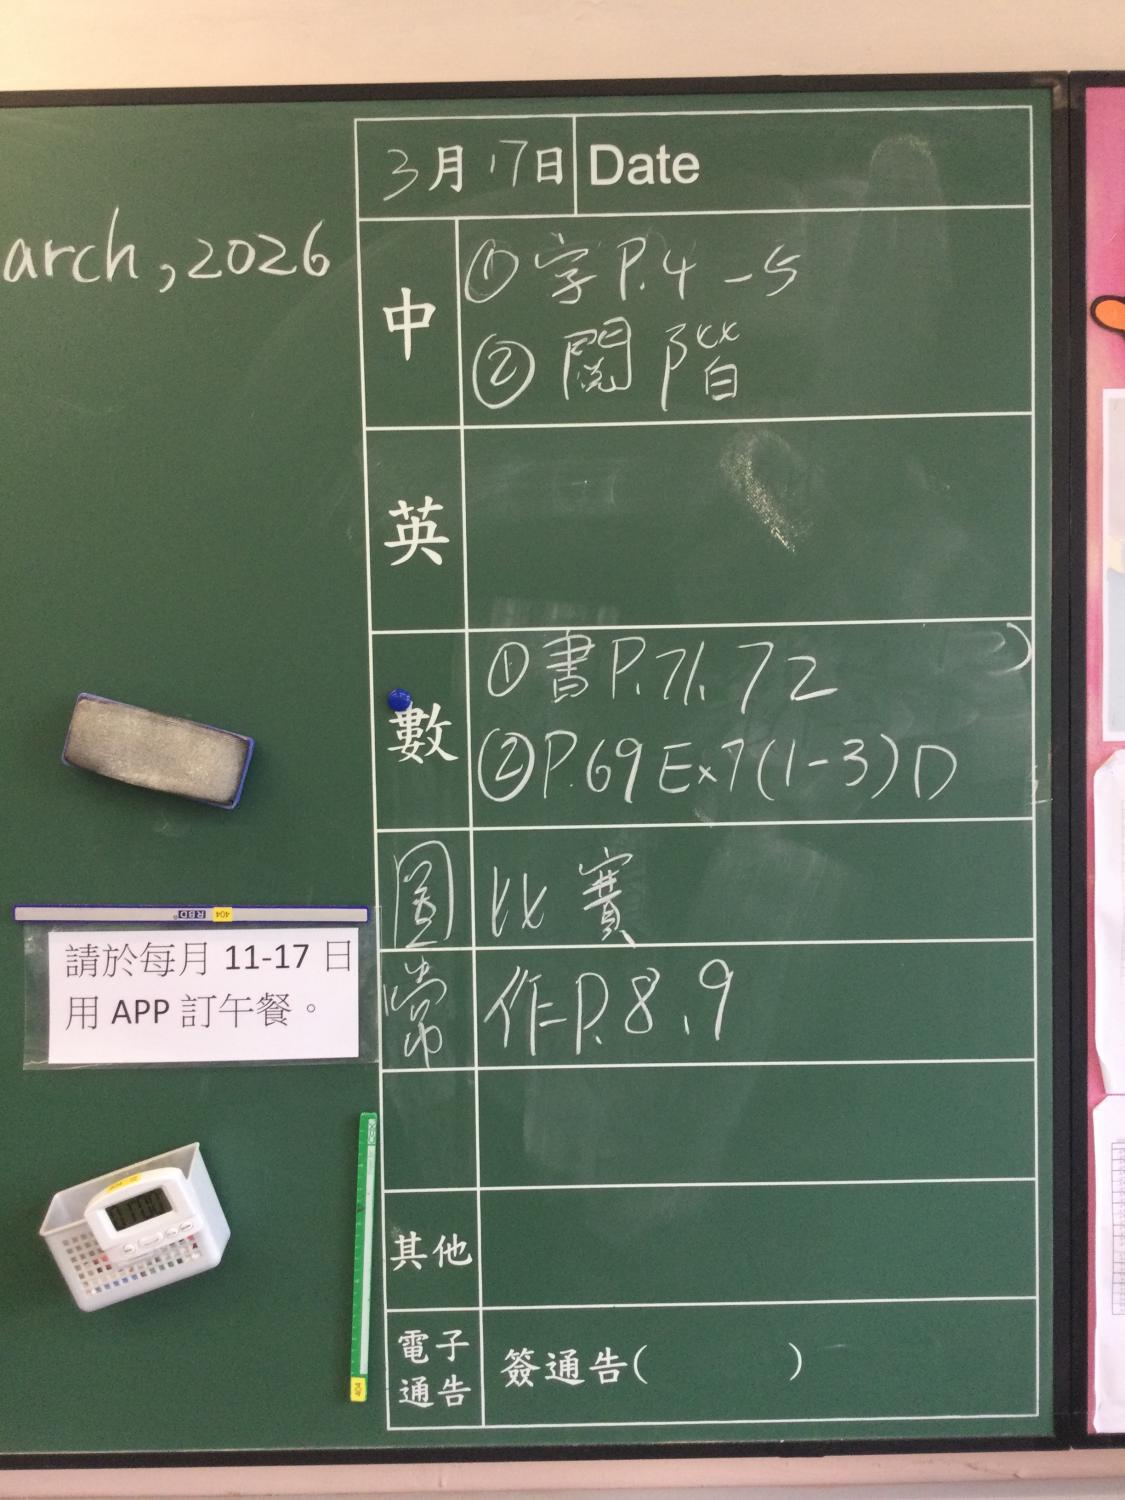 3月17日 Date
arch, 2026
中
① 字P.4-5
② 閱階
英
數
① 書P.71, 72
② P.69 Ex7(1-3)D
圖 比賽
常 作P.8, 9
RBD 404
請於每月 11-17 日
用 APP 訂午餐。
其他
電子
通告
簽通告( )